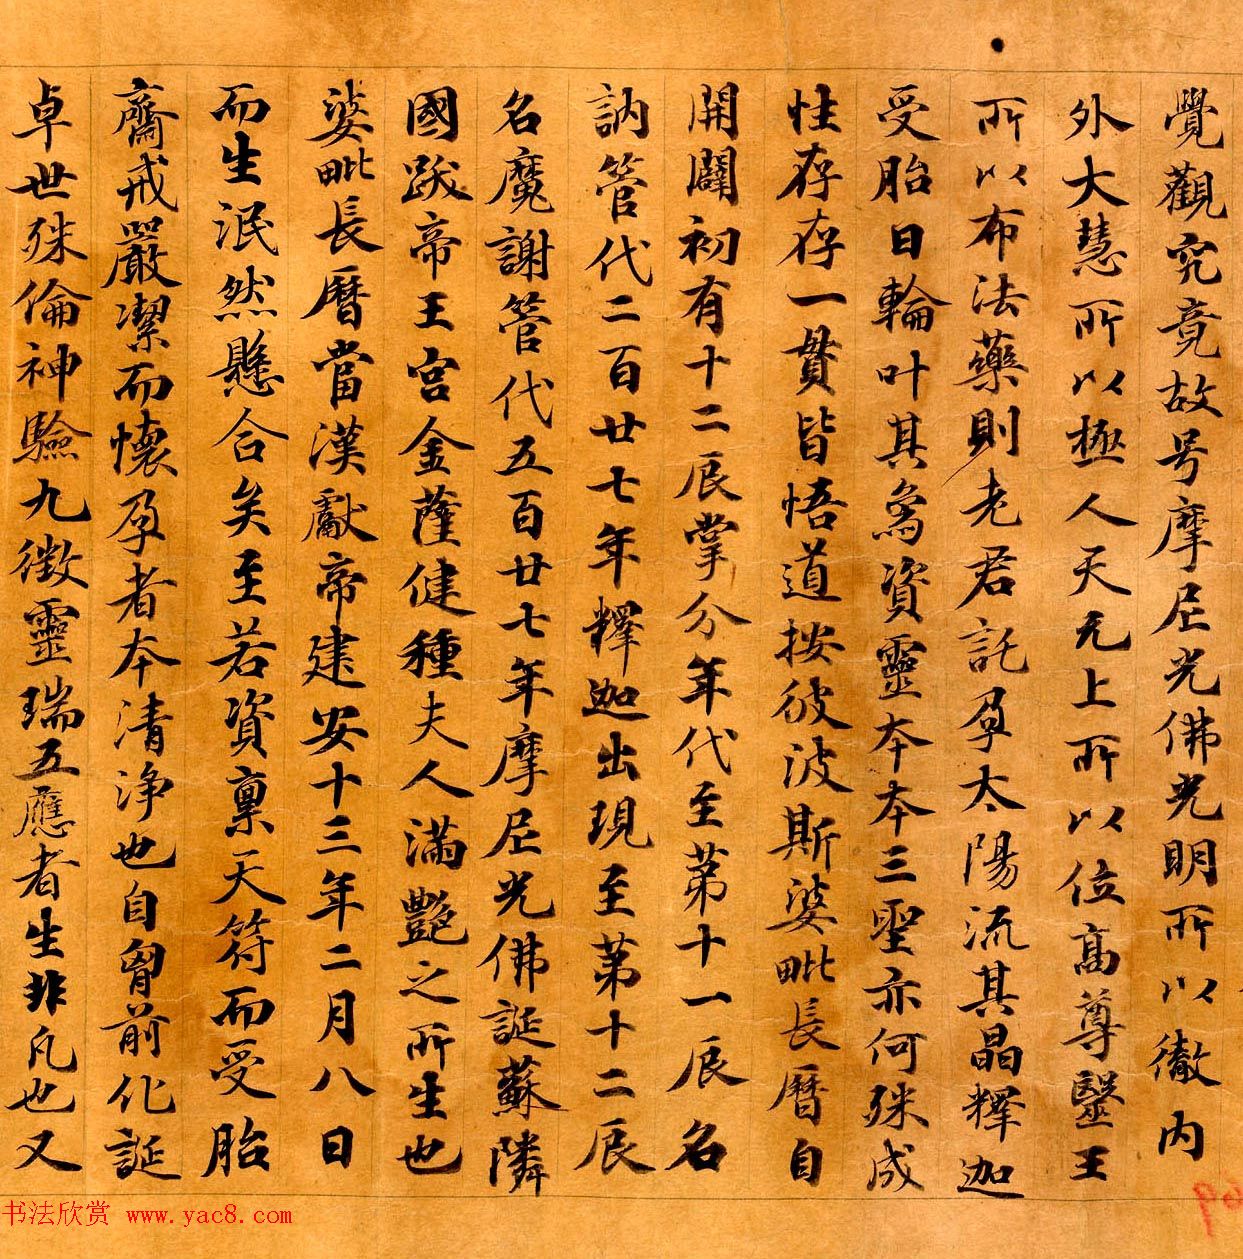 覺觀究竟故号摩尼光佛光明所以徹内
外大慧所以極人天无上所以位高尊毉王
所以布法藥則老君託孕太陽流其晶釋迦
受胎日輪叶其烏資靈本本三聖亦何殊成
性存存一貫皆悟道按彼波斯婆毗長曆自
開闢初有十二辰掌分年代至第十一辰名
訥管代二百廿七年釋迦出現至第十二辰
名魔謝管代五百廿七年摩尼光佛誕蘇隣
國跋帝王宮金薩健種夫人滿艷之所生也
婆毗長曆當漢獻帝建安十三年二月八日
而生泯然懸合矣至若資稟天符而受胎
齋戒嚴潔而懷孕者本清浄也自胷前化誕
卓世殊倫神驗九徵靈瑞五應者生非凡也又
书法欣赏 www.yac8.com